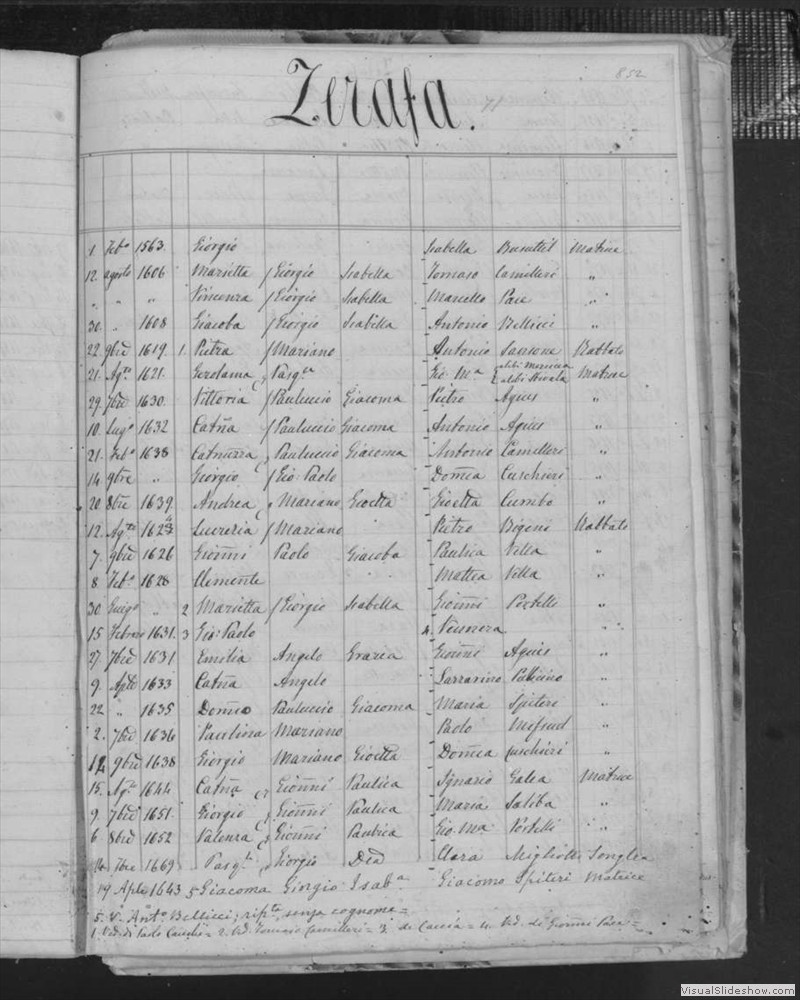 852
Zerafa.
1. Feb.o 1563. Giorgio Isabella Busuttil Matrice
12. agosto 1606 Marietta f Giorgio Isabella Tomaso Camilleri "
" " " Vincenza f Giorgio Isabella Marcello Pace "
30. " 1608 Giacoba f Giorgio Isabella Antonio Bellicci "
22. 9bre 1619 1. Pietra f Mariano Antonio Sansone Rabbato
21. Ag.to 1621. Gerolama Pasq.a Gio M.a Matrice
29. 7bre 1630. Vittoria f Pauluccio Giacoma Pietro Agius "
10. Lug.o 1632 Catña f Pauluccio Giacoma Antonio Agius "
21. Feb.o 1638 Catnuzza Pauluccio Giacoma Antonio Camilleri "
14 9bre " Giorgio f Gio Paolo Domca Cuschieri "
20. 8bre 1639. Andrea Mariano Gioetta Gioetta Cumbo "
12. Ag.to Lucrezia f Mariano Pietro Rabbato
7. 9bre 1626 Gionñi Paolo Giacoba Paulica Vella "
8. Feb.o 1628 Clemente Mattea Vella "
30 Giug.o " 2 Marietta f Giorgio Isabella Gionñi Portelli "
15 Febraro 1631. 3 Gio: Paolo 4. Vennera "
27. 7bre 1631 Emilia Angelo Grazia Gionñi Agius "
9. Aple 1633 Catña Angelo Lazzarino "
22 " 1635 Domco Pauluccio Giacoma Maria Spiteri "
2. 7bre 1636 Paulina Mariano Paolo Mifsud "
12 9bre 1638 Giorgio Mariano Gioetta Domca Cuschieri "
15. Ag.to 1644 Catña Gionñi Paulica Ignazio Galea Matrice
9. 7bre 1651. Giorgio Gionñi Paulica Maria Saliba "
6 8bre 1652 Valenza Gionñi Paulica Gio. Ma Portelli "
14. 7bre 1669 Pasq.le Giorgio Dea Clara Migliotti Senglea
19 Aple 1643 5 Giacoma Giorgio Isab.a Giacomo Spiteri Matrice
5. V. Ant.o Bellicci; senza cognome =
1. Ved. di Paolo = 2. Vd. Tomaso Camilleri = 3. de Caccia = 4. Vd. di Gionñi Pace =
VisualSlideshow.com